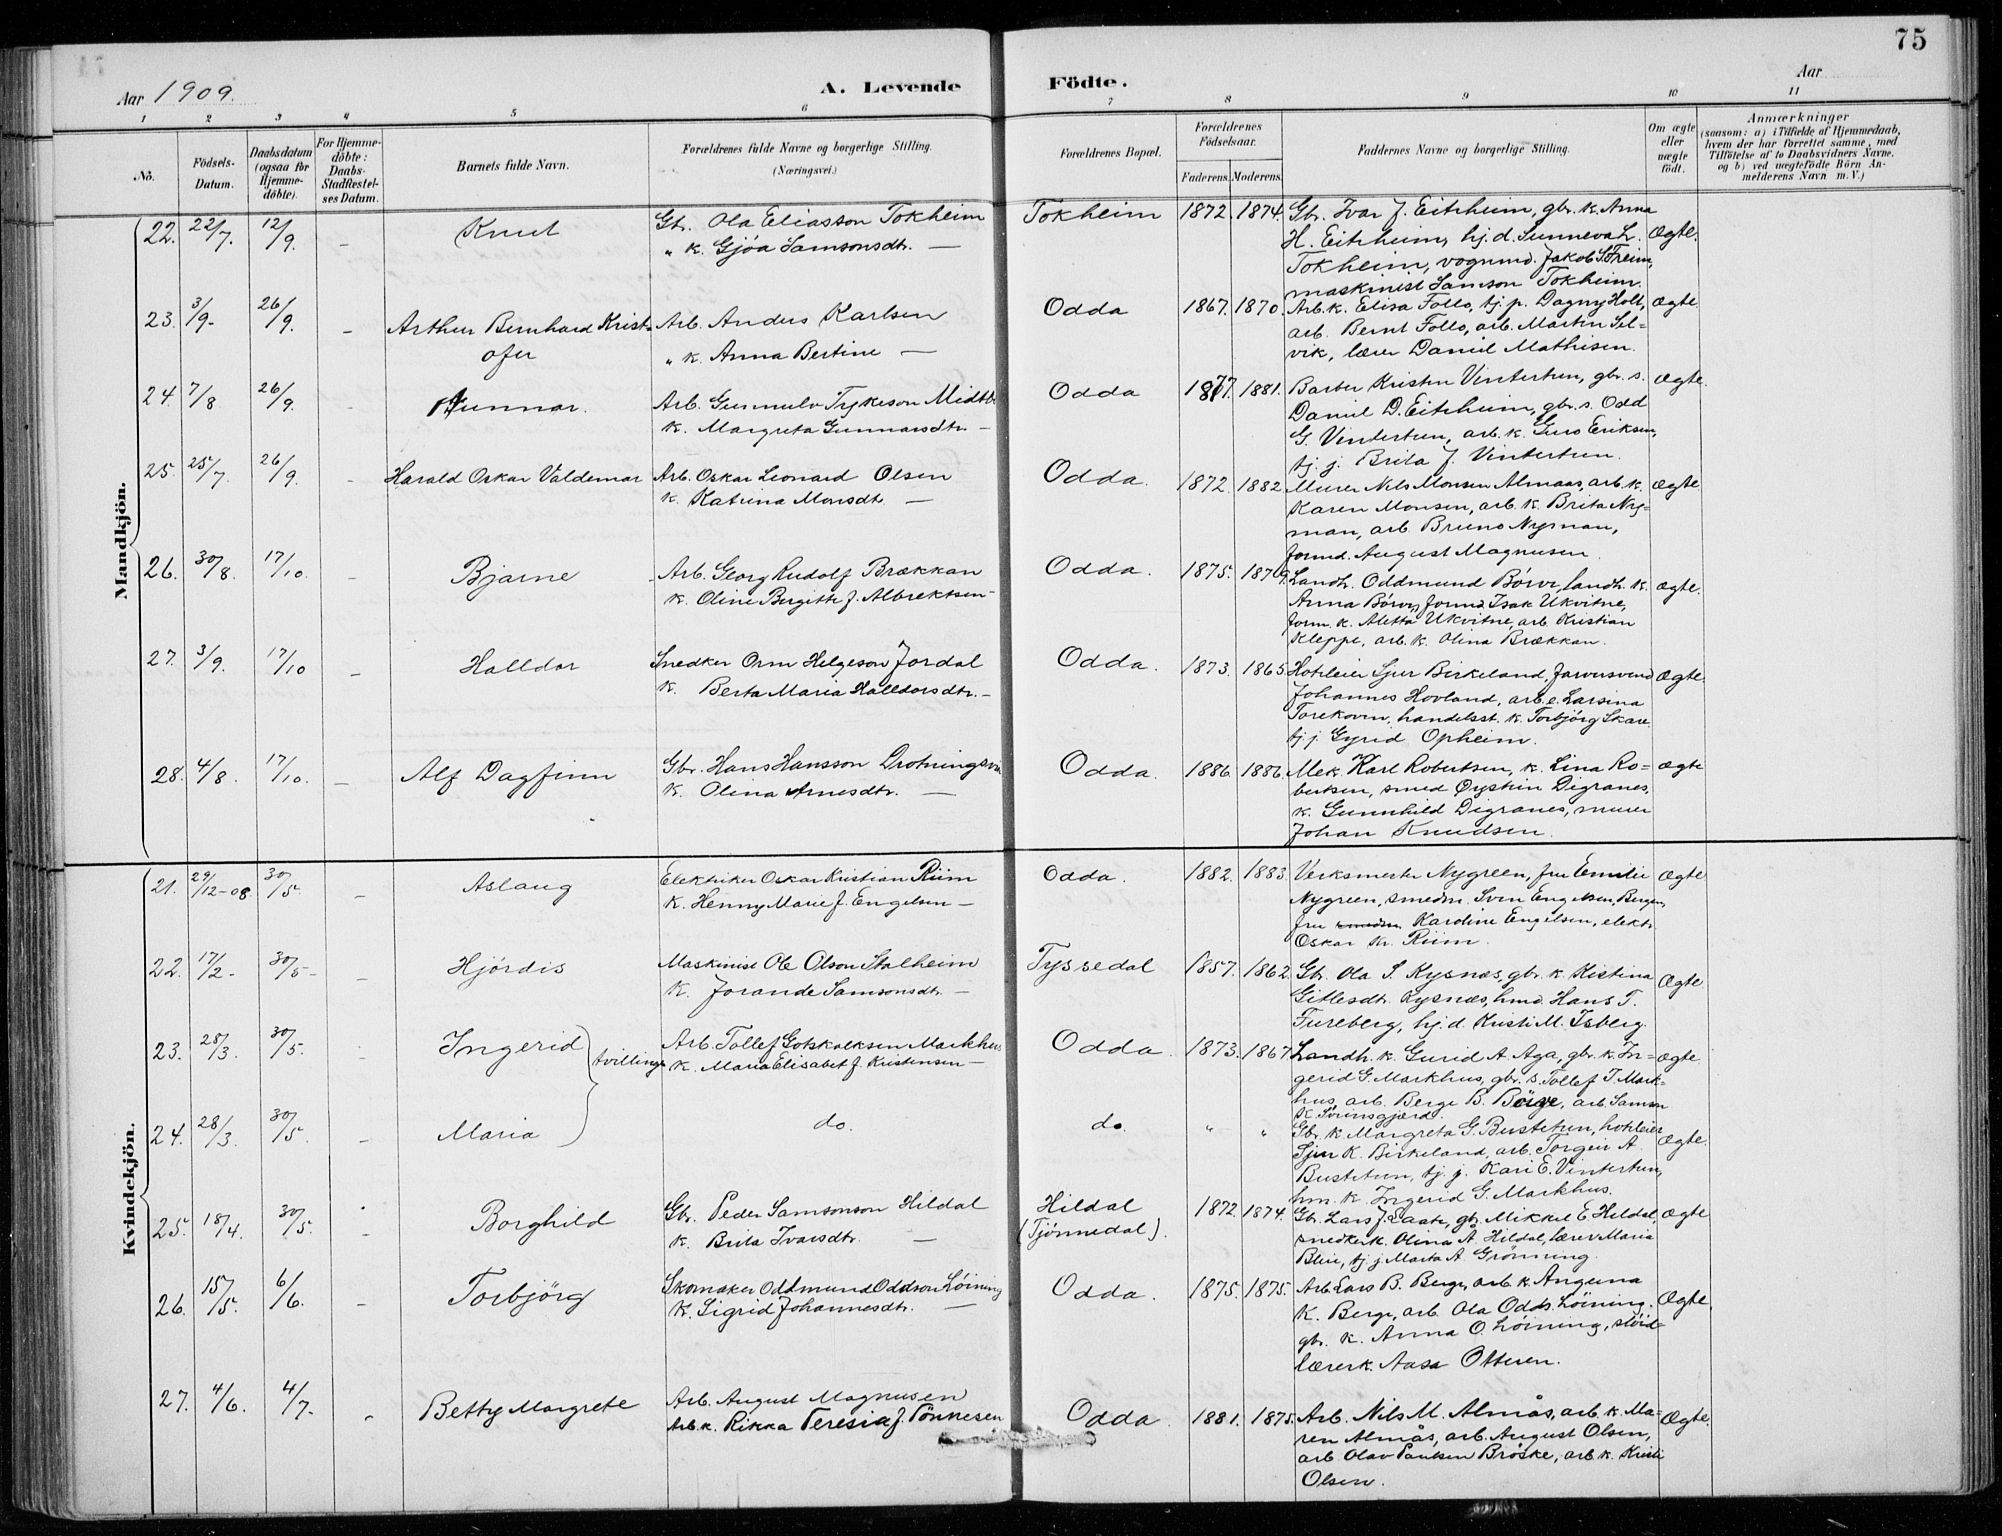 75
Aar 1909.
A. Levende Födte.
Aar
1 2 3 4 5 6 7 8 9 10 11
No.
Födsels-Datum.
Daabsdatum (ogsaa for Hjemme-döbte).
For Hjemme-döbte: Daabs-Stadfæstel-ses Datum.
Barnets fulde Navn.
Forældrenes fulde Navne og borgerlige Stilling.
(Næringsvei.)
Forældrenes Bopæl.
Forældrenes Födselsaar.
Faderens. Moderens.
Faddernes Navne og borgerlige Stilling.
Om ægte eller uægte födt.
Anmærkninger
(saasom: a) i Tilfælde af Hjemmedaab, hvem der har forrettet samme, med Tilföielse af to Daabsvidners Navne, og b) ved uægtefödte Börn An-melderens Navn m. V.)
Mandkjön.
22. 22/7. 12/9. – Knut
Gbr. Ola Eliasson Tokheim
" k. Gjøa Samsonsdtr. —
Tokheim 1872. 1874.
Gbr. Ivar J. Eitrheim, gbr. k. Anna
H. Eitrheim, hj. d. Sunneva L.
Tokheim, vognmd. Jakob S. Freim,
maskinist Samson Tokheim.
Ægte.
23. 3/9. 26/9. – Arthur Bernhard Krist-
ofer
Arb. Anders Karlsen
" k. Anna Bertine —
Odda 1867. 1870.
Arb. k. Elisa Follo, tj. p. Dagny Holt,
arb. Bernt Follo, arb. Martin Sel-
vik, lærer Daniel Mathisen.
Ægte.
24. 7/8. 26/9. – Gunnar.
Arb. Gunnulv Tykeson Midtb.
k. Margreta Gunnarsdtr. —
Odda 1877. 1881.
Barber Kristen Vintertun, gbr. s.
Daniel D. Eitrheim, gbr. s. Odd
G. Vintertun, arb. k. Guro Eriksen,
tj. j. Brita J. Vintertun.
Ægte.
25. 25/7. 26/9. – Harald Oskar Valdemar
Arb. Oskar Leonard Olsen
k. Katrina Monsdt. —
Odda. 1872. 1882.
Murer Nils Monsen Almaas, arb. k.
Karen Monsen, arb. k. Brita Ny-
man, arb. Bruno Nyman,
formd. August Magnusen.
Ægte.
26. 30/8. 17/10. – Bjarne
Arb. Georg Rudolf Brækkan
k. Oline Birgitte f. Albrektsen –
Odda. 1875. 1879.
Landh. Oddmund Børve, landh. k.
Anna Børve, formd. Isak Ukvitne,
form. k. Aletta Ukvitne, arb. Kristian
Kleppe, arb. k. Olina Brækkan.
Ægte.
27. 3/9. 17/10 – Halldor
Snedker Orm Helgeson Jordal
k. Berta Maria Halldorsdtr. –
Odda. 1873. 1865.
Hoteleier Sjur Birkeland, farversvend
Johannes Hovland, arb. e. Larsina
Torekoven, handelsst. k. Torbjörg Skare
tj. j. Gyrid Opheim.
Ægte.
28. 4/8. 17/10. – Alf Dagfinn
Gbr. Hans Hansson Drotningsvik
k. Olina Arnesdtr. —
Odda. 1886. 1886.
Mek. Karl Robertsen, k. Lina Ro-
bertsen, smed Øystein Digranes,
k. Gunnhild Digranes, murer
Johan Knudsen.
Ægte
Kvindekjön.
21. 29/12-08. 30/5. – Aslaug
Elektriker Oskar Kristian Riim
k. Henny Marie f. Engelsen –
Odda. 1882. 1883.
Verksmester Nygreen, fru Emilie
Nygreen, smedm. Sven Engelsen, Bergen,
fru smedm. Karoline Engelsen, elektr.
Oskar Kr. Riim.
Ægte
22. 17/2. 30/5. – Hjördis
Maskinist Ole Olson Stalheim
k. Jorande Samsonsdtr. –
Tyssedal 1857. 1862.
Gbr. Ola S. Kysnæs, gbr. k. Kristina
Gitlesdtr. Kysnæs, hmd. Hans T.
Fureberg, hj. d. Kristi M. Isberg.
Ægte
23. 28/3. 30/5. – Ingerid tvillinge
Arb. Tollef Gotskalksen Markhus
k. Maria Elisabet f. Kristensen –
Odda. 1873. 1867.
Landh. k. Gurid A. Aga, gbr. k. In-
gerid G. Markhus, gbr. s. Tollef T. Mark-
hus, arb. Berge B. Berge, arb. Samson
K. Sørinsgjerd.
Ægte.
24. 28/3. 30/5. – Maria
do. do. " "
Gbr. k. Margreta G. Bustetun, hoteleier
Sjur K. Birkeland, arb. Torgeir A
Bustetun, tj. j. Kari E. Vintertun,
hm. k. Ingerid G. Markhus.
Ægte.
25. 18/4. 30/5. – Borghild
Gbr. Peder Samsonson Hildal
k. Brita Ivarsdtr. —
Hildal
(Tjönnedal).
1872. 1874.
Gbr. Lars J. Laate, gbr. Mikkel E Hildal,
snedker k. Olina A. Hildal, lærer Maria
Blie, tj. j. Marta A. Grönning.
Ægte
26. 15/5. 6/6. – Torbjörg
Skomaker Oddmund Oddson Löining
k. Sigrid Johannesdtr. —
Odda. 1875. 1875.
Arb. Lars B. Berge, arb. k. Anguna
K. Berge, arb. Ola Odds. Löining.
gbr. k. Anna O. Löining, slöid-
lærerk. Aasa Otteren.
Ægte.
27. 4/6. 4/7. – Betty Margrete
Arb. August Magnusen
Arb. k. Rikka Teresia f. Tönnesen
Odda. 1881. 1875.
Arb. Nils M. Almås, arb. k. Ma-
ren Almås, arb. August Olsen,
arb. Olav Paulsen Bröske, arb. k. Kristi
Olsen.
Ægte.